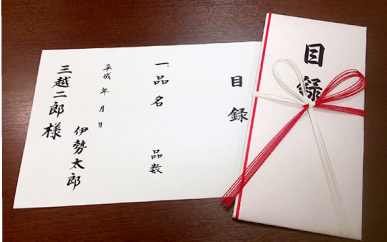 目録
一、品名 品数
平成 年 月 日
伊勢太郎
三越二郎様
目録